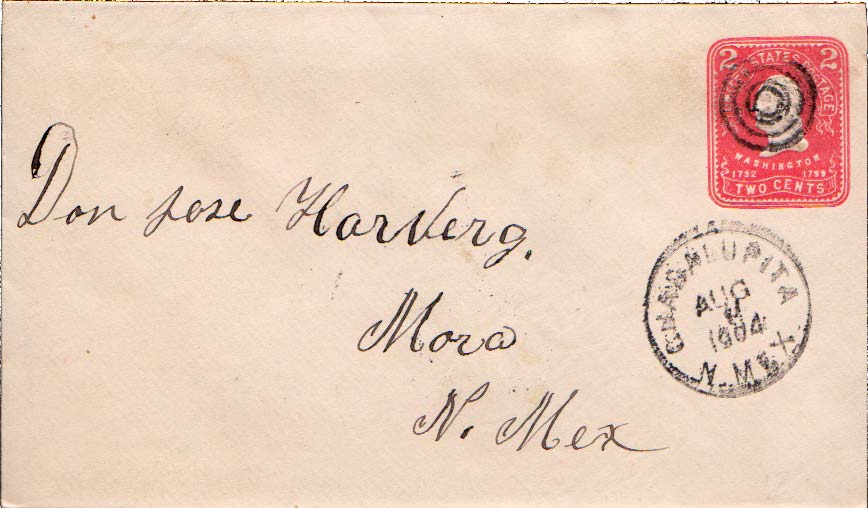 2 2
UNITED STATES POSTAGE
WASHINGTON
1732 1799
TWO CENTS
Don Jose Harberg.
Mora
N. Mex
GUADALUPITA
AUG
1904
N. MEX.